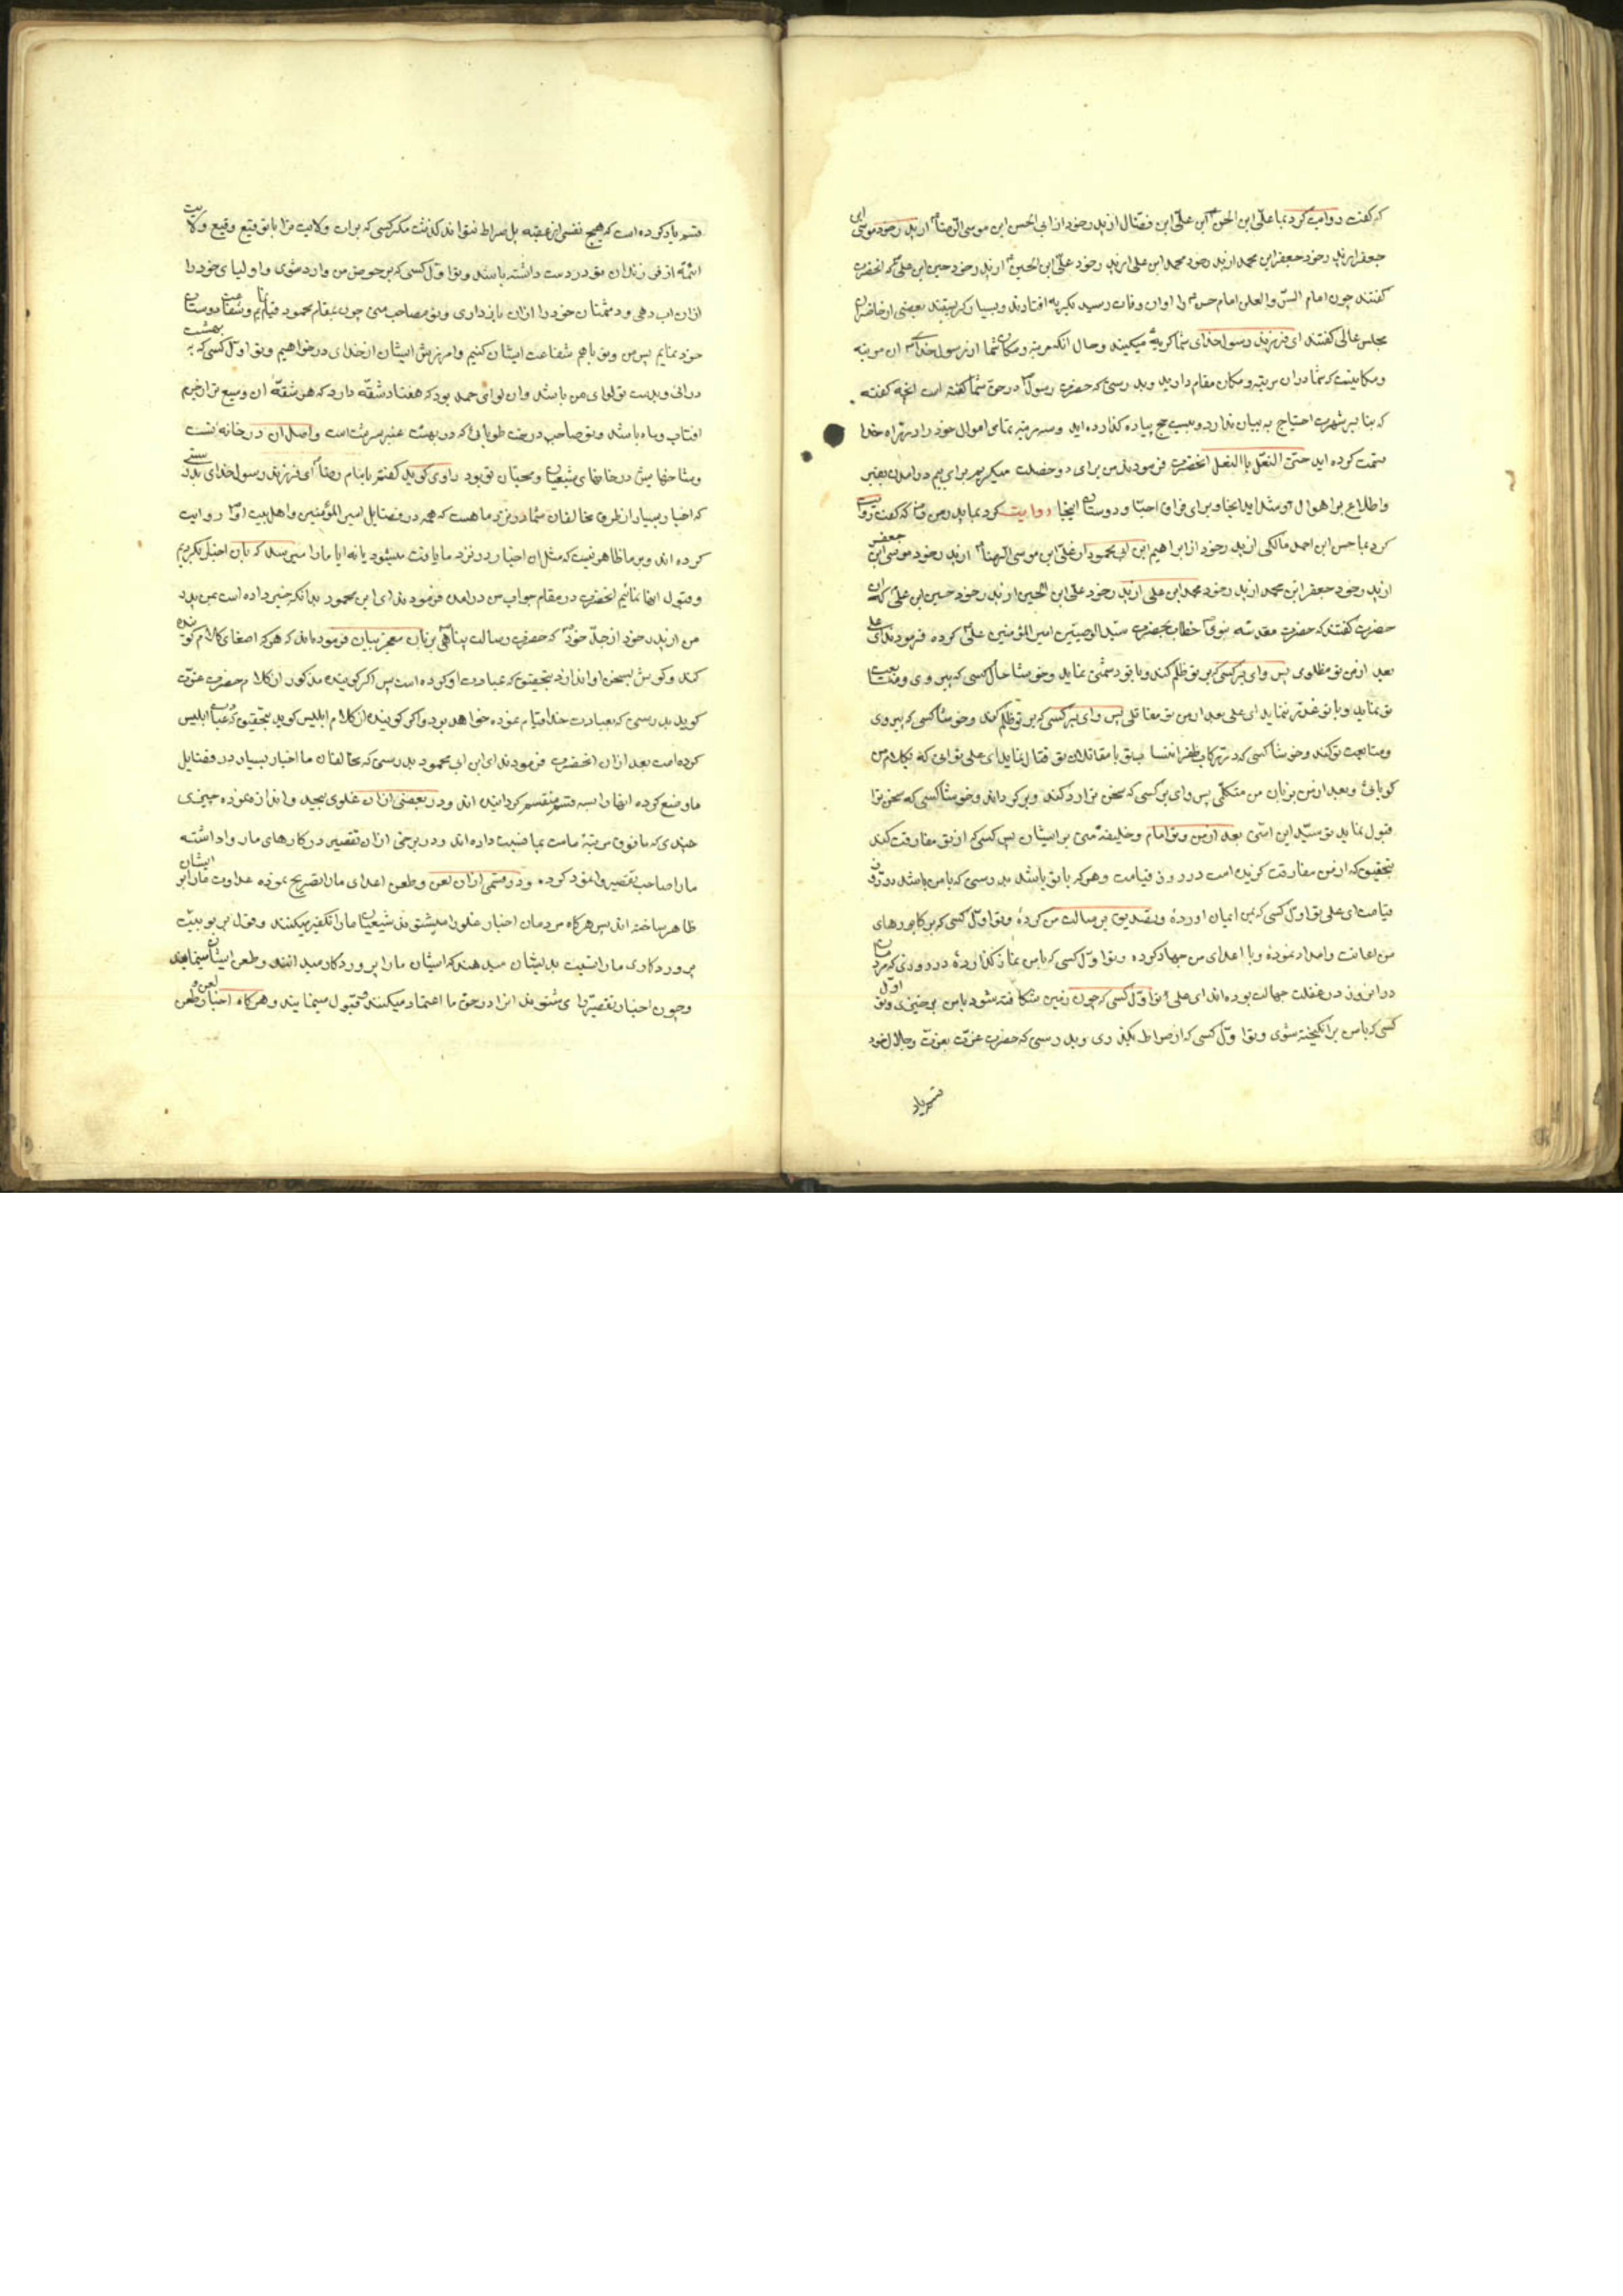 که گفت روایت کرد بما علی ابن الحسن ابن علی ابن فضال از پدر خود از ابی الحسن ابن موسی الرضا از پدر خود موسی ابن
جعفر از پدر خود جعفر ابن محمد از پدر خود محمد ابن علی از پدر خود علی ابن الحسین از پدر خود حسین ابن علی که انحضرت
گفتند چون امام حسن را اوان وفات رسید بگریه افتادند و بسیار گریستند بعضی از حاضران
مجلس عالی گفتند ای فرزند رسول خدای شما گریه میکنید و حال انکه مرتبه و مکان شما از رسول خدا ان مرتبه
و مکانیست که شما دران مرتبه و مکان مقام دارید و بدرستی که حضرت رسول در حق شما گفته است انچه گفته
که بنا بر شهرت احتیاج به بیان ندارد و بیست حج پیاده گذارده اید و سه مرتبه تمامی اموال خود را در راه خدا
قسمت کرده اید حتی النعل باالنعل انحضرت فرمودند من برای دو خصلت میگریم برای بیم درامدن بقبر
و اطلاع بر اهوال و برای فراق احبا و دوستان اینجا روایت کرد بما پدر من که گفت روایت
کرد بما حسن ابن احمد مالکی از پدر خود از ابراهیم ابن ابی محمود از علی ابن موسی الرضا از پدر خود موسی ابن جعفر
از پدر خود جعفر ابن محمد از پدر خود محمد ابن علی از پدر خود علی ابن الحسین از پدر خود حسین ابن علی که ان
حضرت گفتند که حضرت مقدسه نبوی خطاب بحضرت سید الوصیین امیر المؤمنین علی کرده فرمودند ای علی
بعد از من تو مظلومی پس وای بر کسی که بر تو ظلم کند و با تو دشمنی نماید و خوشا حال کسی که پیروی و متابعت
تو نماید و با تو غدر ننماید ای علی بعد از من تو مقاتلی پس وای بر کسی که بر تو ظلم کند و خوشا کسی که پیروی
و متابعت تو کند و خوشا کسی که در رکاب ظفر انتساب تو با مقاتلان تو قتال نماید ای علی توایی که بکلام من
گویائی و بعد از من بزبان من متکلمی پس وای بر کسی که سخن ترا رد کند و برگرداند و خوشا کسی که سخن ترا
قبول نماید تو سید این امتی بعد از من و تو امام و خلیفه منی بر ایشان پس کسی که از تو مفارقت کند
بتحقیق که از من مفارقت گزیده است در روز قیامت و هر که با تو باشد بدرستی که با من باشد در روز
قیامت ای علی تو اول کسی که بمن ایمان اورده و تصدیق برسالت من کرده و تو اول کسی که بر کارهای
من اعانت و امداد نموده و با اعدای من جهاد کرده و تو اول کسی که با من نماز گذارده در روزی که مردمان
دران روز در غفلت جهالت بوده اند ای علی تو اول کسی که چون زمین شکافته شود با من برخیزی و تو اول
کسی که با من برانگیخته شوی و تو اول کسی که از صراط بگذری و بدرستی که حضرت عزت بعزت و جلال خود
قسم یاد
قسم یاد کرده است که هیچ نفسی از عقبه پل صراط نتواند گذشت مگر کسی که برات ولایت ترا با توقیع وقیع ولایت
ائمه از فرزندان تو در دست داشته باشد و تو اول کسی که بر حوض من وارد شوی و اولیای خود را
ازان اب دهی و دشمنان خود را ازان بازداری و تو مصاحب منی چون بمقام محمود قیام نمایم و شفاعت دوستان
خود نمایم پس من و تو باهم شفاعت ایشان کنیم و امرزش ایشان از خدای درخواهیم و تو اول کسی که به بهشت
درائی و بدست تو لوای من باشد و ان لوای حمد بود که هفتاد شقه دارد که هر شقه ان وسیع تر از جرم
افتاب و ماه باشد و تو صاحب درخت طوبایی که در بهشت عنبر سرشت است و اصل ان در خانه تست
و شاخهایش در خانهای شیعیان و محبان تو بود راوی گوید گفتم بامام رضا ای فرزند رسول خدای بدرستی
که اخبار بسیار از طرق مخالفان شما در نزد ما هست که همه در فضایل امیر المؤمنین و اهل بیت او روایت
کرده اند و بر ما ظاهر نیست که مثل ان اخبار در نزد ما یافت میشود یا نه ایا ما را میرسد که بان اخبار بگرویم
و قبول انها نمائیم انحضرت در مقام جواب من درامده فرمودند ای ابن محمود بدانکه خبر داده است بمن پدر
من از پدر خود از جد خود که حضرت رسالت پناهی بزبان معجز بیان فرموده اند که هر که اصغای کلام گوینده
کند و گوش بسخن او اندازد بتحقیق که عبادت او کرده است پس اگر گوینده مذکور از کلام حضرت عزت
گوید بدرستی که بعبادت خدا قیام نموده خواهد بود و اگر گوینده از کلام ابلیس گوید بتحقیق که عبادت ابلیس
کرده است بعد ازان انحضرت فرمودند ای ابن ابی محمود بدرستی که مخالفان ما اخبار بسیار در فضایل
ما وضع کرده انها را بسه قسم منقسم گردانیده اند و در بعضی ازان غلوی بیحد و اندازه نموده چیزی
چندی که مافوق مرتبه ماست بما نسبت داده اند و در برخی ازان تقصیر در کارهای ما روا داشته
ما را صاحب تقصیر وانمود کرده و در قسمی ازان لعن و طعن اعدای ما را تصریح نموده عداوت ما را بر ایشان
ظاهر ساخته اند پس هرگاه مردمان اخبار غلو را میشنوند شیعیان ما را تکفیر میکنند و قول بربوبیت
پروردگاری ما را نسبت بدیشان میدهند که ایشان ما را پروردگار میدانند و طعن ایشان مینمایند
و چون اخبار تقصیر را می شنوند انرا در حق ما اعتقاد میکنند و قبول مینمایند و هرگاه اخبار لعن و طعن